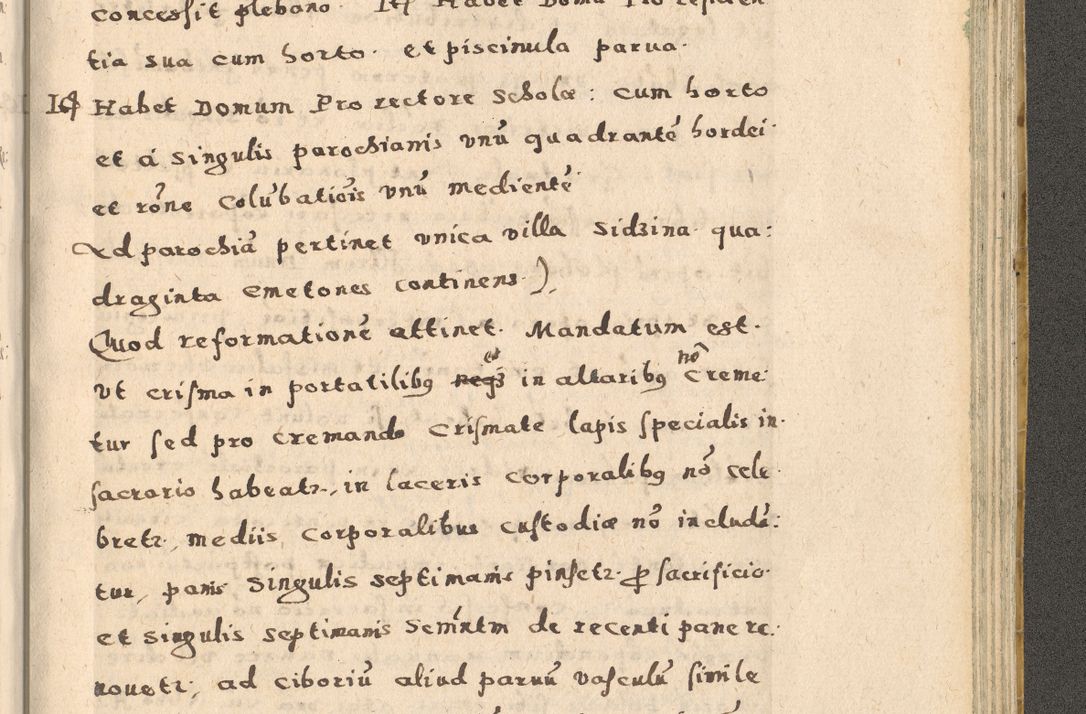 concessit plebano. Itē Habet Domū Pro residen
tia sua cum horto. et piscinula parua.
Itē Habet Domum Pro rectore scholæ: cum horto
et á singulis parochianis vnū quadrantē hordei.
et rōne Colūbatiōis vnū medientē.
Ad parochiā pertinet vnica villa Sidzina qua:
draginta Cmetones continens.).
Quod reformationē attinet. Mandatum est.
et nō
vt crisma in portatilibꝫ neqꝫ in altaribꝫ creme:
tur sed pro cremando Crismate lapis specialis in.
sacrario habeatr., in laceris Corporalibꝫ nō cele
bretr., mediis Corporalibus custodiæ nō includā:
tur, panis singulis septimanis pinsetr. ꝑ sacrificio.
et singulis septimanis Semīntm de recenti pane re.
nouetr:, ad ciboriū aliud paruū vasculū simile